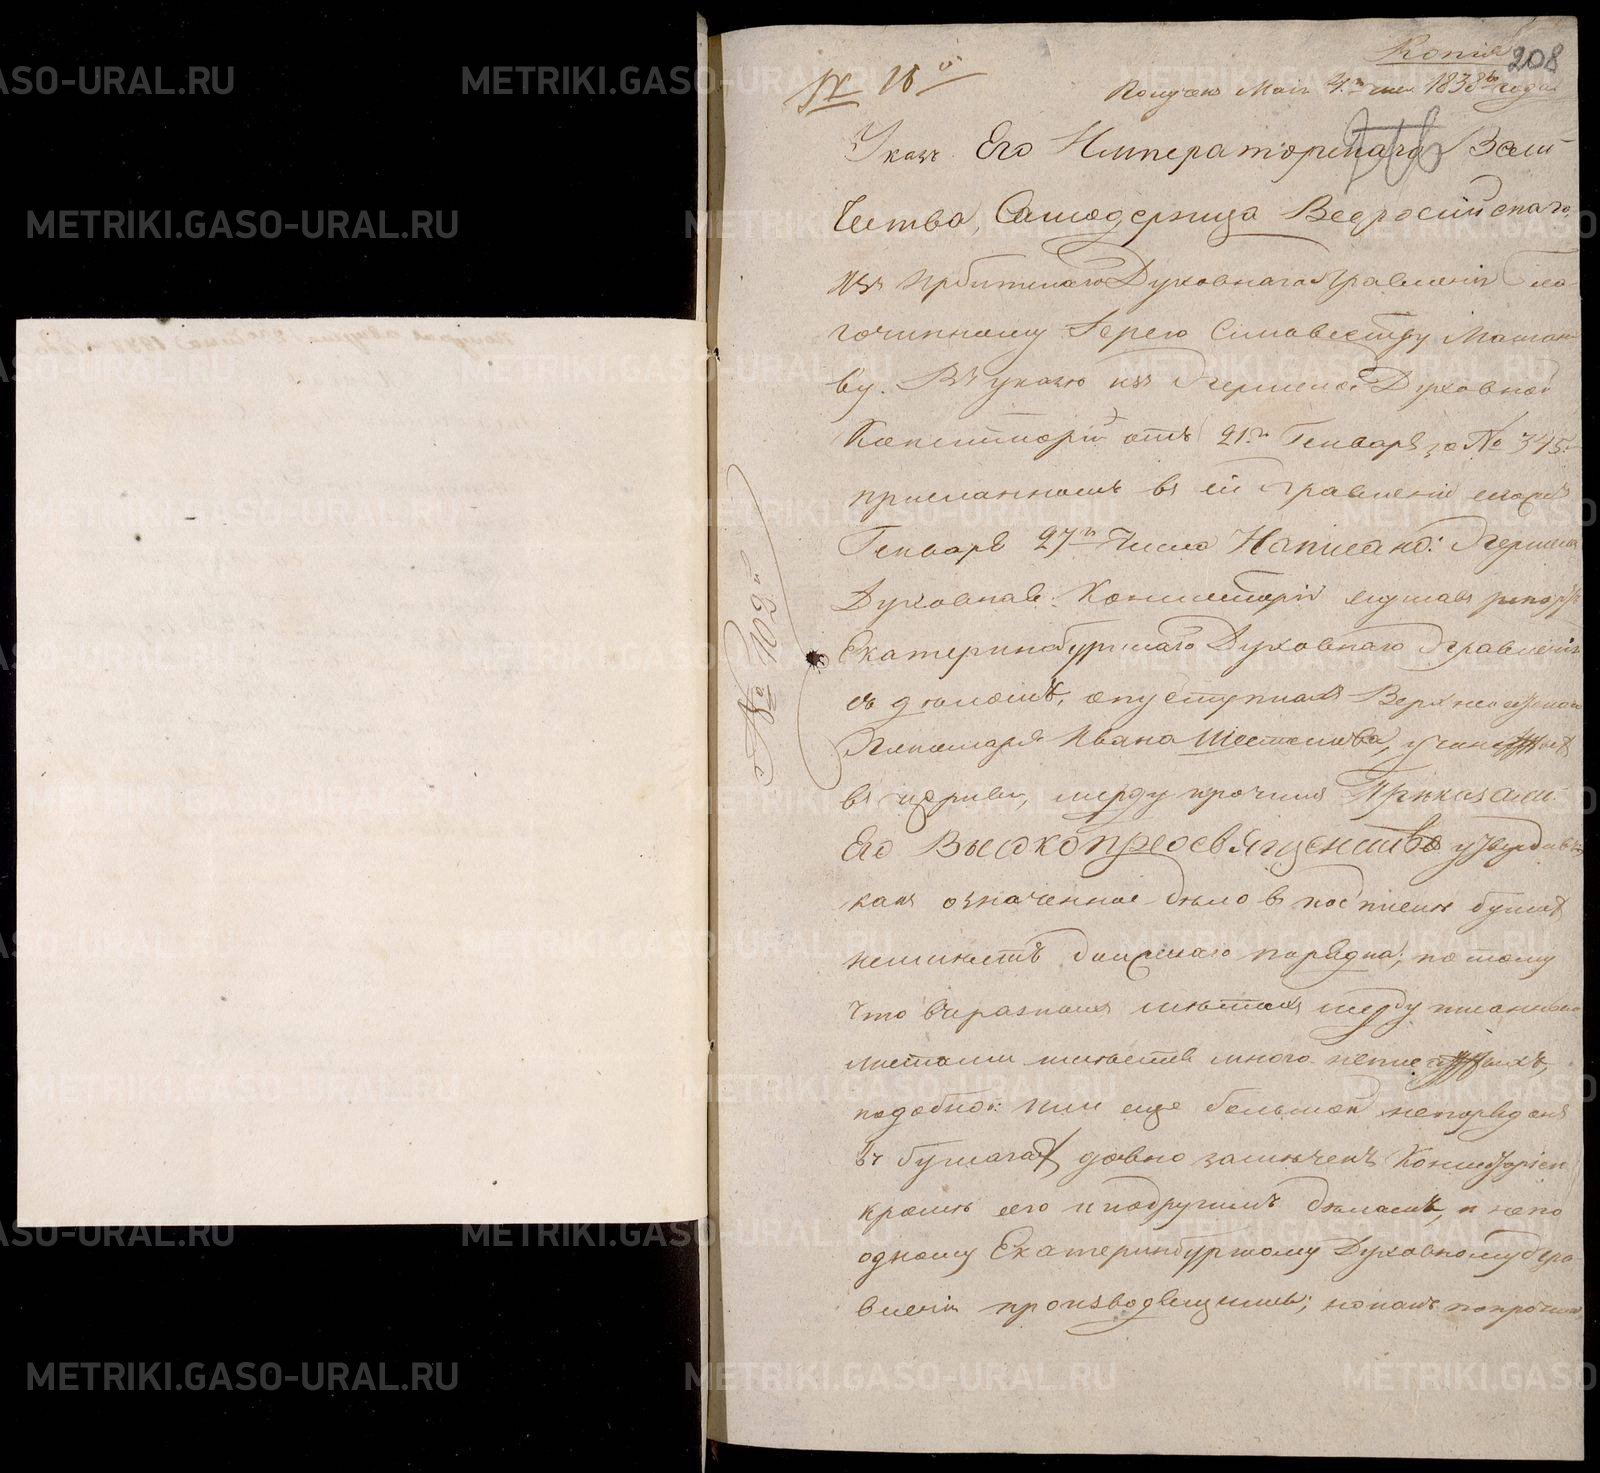 Копія
208
№ 16й
Получен Маія 4го дня 1838го года
Указъ Его Императорскаго Вели-
чества, Самодержца Всеросійскаго
изъ Ирбитскаго Духовнаго Правленія Бла-
гочинному Іерею Сильвестру
ву. Въ указѣ изъ Пермской Духовной
Консисторіи отъ 21го Генваря за № 345м
присланномъ въ сіе Правленіе
Генваря 27го числа Написано: Пермская
Духовная Консисторія слушавъ рапортъ
Екатеринбургскаго Духовнаго Правленія
съ дѣломъ, о поступкахъ
Пономаря Ивана
въ церкви, между прочимъ Приказали:
Его Высокопреосвященство утвердилъ
какъ означенное дѣло въ подписи бумагъ
неимѣетъ должнаго порядка; потому
что въ разныхъ мѣстахъ между писанными
листами имѣется много
подобной или еще большой непорядокъ
въ бумагахъ давно замѣченъ Консисторіею
кромѣ сего и по другимъ дѣламъ, и не по
одному Екатеринбургскому Духовному Пра-
вленію производящимся; но какъ по прочимъ
№ 109й
METRIKI.GASO-URAL.RU